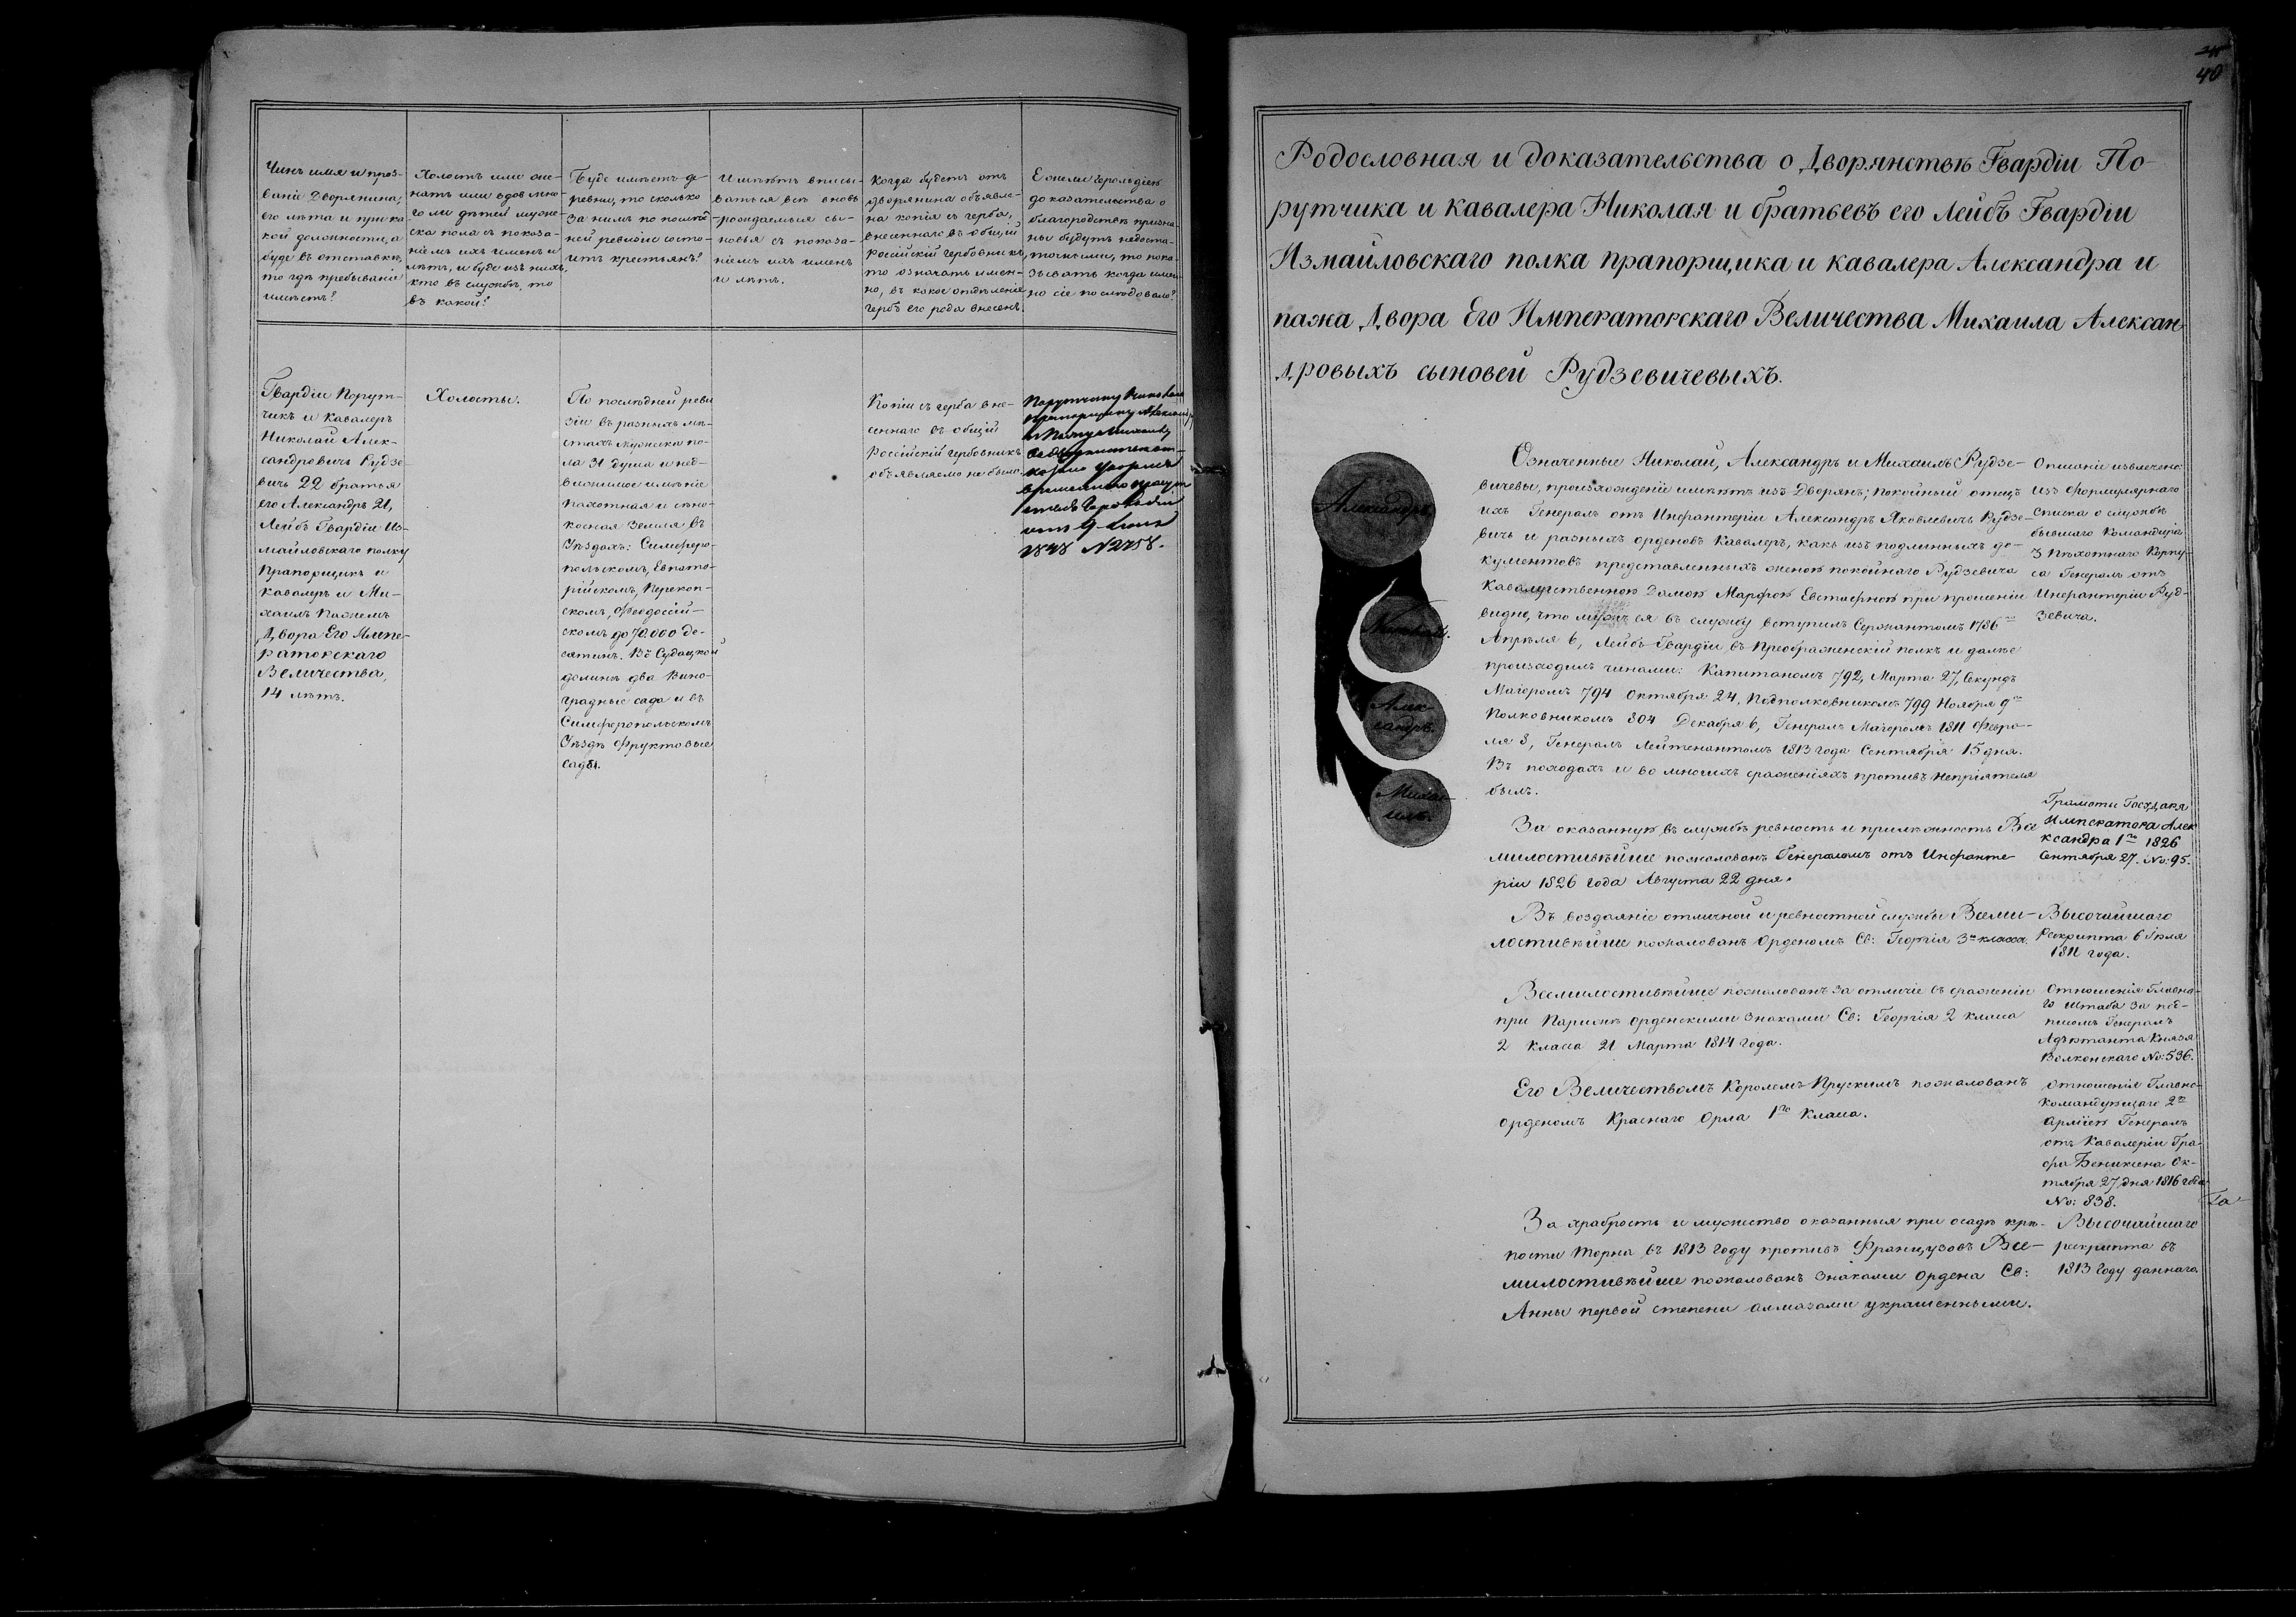 Чинъ имя и проз-
ваніе Дворянина,
его лѣта и при ка-
кой должности, а
буде въ отставкѣ,
то гдѣ пребываніе
имѣетъ?
Холостъ или же-
натъ или вдовъ мно-
го ли дѣтей муже-
ска пола съ показа-
ніемъ ихъ именъ и
лѣтъ, и буде изъ нихъ
кто въ службѣ, то
въ какой?
Буде имѣетъ де-
ревни, то сколько
за нимъ по послѣд-
ней ревизіи состо-
итъ крестьянъ?
Имѣетъ вписы-
ваться всѣ вновь
раждаемыя сы-
новья съ показа-
ніемъ ихъ именъ
и лѣтъ.
Когда будетъ отъ
Дворянина объявле-
на копія съ герба,
внесеннаго въ общій
Россійскій гербовникъ,
то означать имен-
но, въ какое отдѣленіе
гербъ его рода внесенъ.
Ежели Герольдіею
доказательства о
благородствѣ призна-
ны будутъ недоста-
точными, то пока-
зывать когда имен-
но сіе послѣдовало?
Гвардіи Порут-
чикъ и Кавалеръ
Николай Алек-
сандровичь Рудзе-
вичь 22 братья
его Александръ 21,
Лейбъ Гвардіи Из-
майловскаго полку
Прапорщикъ и
Кавалеръ и Ми-
хаилъ Пажемъ
Двора Его Импе-
раторскаго
Величества,
14 лѣтъ.
Холосты.
По послѣдней реви
зіи въ разныхъ мѣ-
стахъ мужеска по-
ла 31 душа и нед-
вижимое имѣніе
пахотная и сѣно-
косная земля въ
Уѣздахъ: Симферо-
польскомъ, Евпато-
рійскомъ, Перекоп-
скомъ, Феодосій-
скомъ до 70.000 де-
сятинъ. Въ Судацкой
долинѣ два Вино-
градные сада и въ
Симферопольскомъ
Уѣздѣ фруктовые
сады.
Копіи съ герба вне-
сеннаго въ общій
Россійскій гербовникъ
объявляемо не было.
Порутчику Николаю
Прапорщику Александру
и Пажу Михаилу

1848 №2758.
40
Родословная и доказательства о Дворянствѣ Гвардіи По-
рутчика и кавалера Николая и братьевъ его Лейбъ Гвардіи
Измайловскаго полка прапорщика и кавалера Александра и
пажа Двора Его Императорскаго Величества Михаила Алексан-
дровыхъ сыновей Рудзевичевыхъ.
Александръ
Николай.
Алек-
сандръ.
Миха-
илъ.
Означенные Николай, Александръ и Михаилъ Рудзе-
вичевы, происхожденіе имѣютъ изъ Дворянъ; покойный отецъ
ихъ Генералъ отъ Инфантеріи Александръ Яковлевичь Рудзе-
вичь и разныхъ орденовъ Кавалеръ, какъ изъ подлинныхъ до-
кументовъ представленныхъ женою покойнаго Рудзевича
Кавалерственною Дамою Марфою Евстафною при прошеніи
видно, что мужъ ея въ службу вступилъ Сержантомъ 1786го
Апрѣля 6, Лейбъ Гвардіи въ Преображенскій полкъ и далѣе
происходилъ чинами: Капитаномъ 792, Марта 27, Секундъ
Маіоромъ 794 Октября 24, Подполковникомъ 799 Ноября 9го
Полковникомъ 804 Декабря 6, Генералъ Маіоромъ 1811 Февра-
ля 8, Генералъ Лейтенантомъ 1813 года Сентября 15 дня.
Въ походахъ и во многихъ сраженіяхъ противъ непріятеля
былъ.
Описаніе извлечено
изъ формулярнаго
списка о службѣ
бывшаго Командира
3 Пѣхотнаго Корпу-
са Генералъ отъ
Инфантеріи Руд-
зевича.
За оказанную въ службѣ ревность и прилѣжность Все
милостивѣйше пожалованъ Генераломъ отъ Инфанте-
ріи 1826 года Августа 22 дня.
Грамоты Государя
Императора Алек
ксандра 1го 1826
Сентября 27. No: 95.
Въ воздаяніе отличной и ревностной службы Всеми-
лостивѣйше пожалованъ Орденомъ Св: Георгія 3го класа.
Высочайшаго
Рескрипта 6 Іюля
1811 года.
Всемилостивѣйше пожалованъ за отличіе въ сраженіи
при Парижѣ орденскими знаками Св: Георгія 2 класа
2 класа 21 Марта 1814 года.
Отношенія Главна-
го Штаба за под-
писомъ Генералъ
Адъютанта Князя
Волконскаго No: 536.
Его Величествомъ Королемъ Прускимъ пожалованъ
орденомъ Краснаго Орла 1го Класа.
Отношенія Главно-
Командующаго 2ю
Арміею Генералъ
отъ Кавалеріи Гра-
фа Бенигсена Ок-
тября 27 дня 1816 года
No: 838.
За храбрость и мужество оказанныя при осадѣ крѣ-
пости Торна въ 1813 году противъ Французовъ Все-
милостивѣйше пожалованъ знаками Ордена Св:
Анны первой степени алмазами украшенными.
Высочайшаго
рескрипта въ
1813 году даннаго.
За